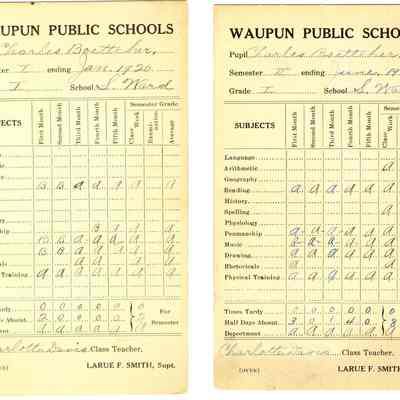 UPUN PUBLIC SCHOOLS
Charles Boettcher
ter I ending Jan. 1920
I School S. Ward
ECTS
First Month
Second Month
Third Month
Fourth Month
Fifth Month
Semester Grade
Class Work
Exami-nation
Average
B B a a a a
ship B
B B a a a
B B a a a
a a a
Physical Training
ardy 0 0 0 0 0
ys Absent 2 0 0 0 0
For Semester
ent
Charlotte Davis Class Teacher.
LARUE F. SMITH, Supt.
WAUPUN PUBLIC SCHOO
Pupil Charles Boettcher
Semester II ending June, 19
Grade I School S. Wa
SUBJECTS
First Month
Second Month
Third Month
Fourth Month
Fifth Month
Class Work
Language
Arithmetic a
Geography
Reading a a a a a a
History
Spelling a
Physiology
Penmanship
Music
Drawing
Rhetoricals
Physical Training
Times Tardy 0 0 0 0 0
Half Days Absent 3 0 1 4 0 8
Deportment
Charlotte Davis Class Teacher.
(OVER) LARUE F. SMITH